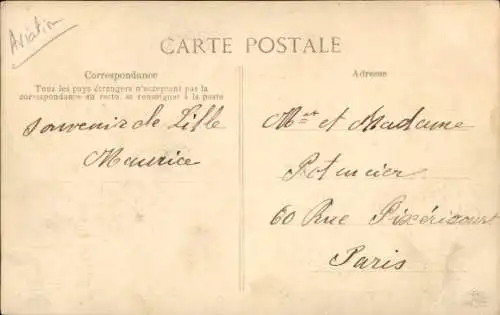 Aviation
CARTE POSTALE
Correspondance
Tous les pays étrangers n'acceptant pas la
correspondance au recto, se renseigner à la poste
Adresse
Souvenir de Lille
Maurice
Mr et Madame
Potencier
60 Rue Pixéricourt
Paris